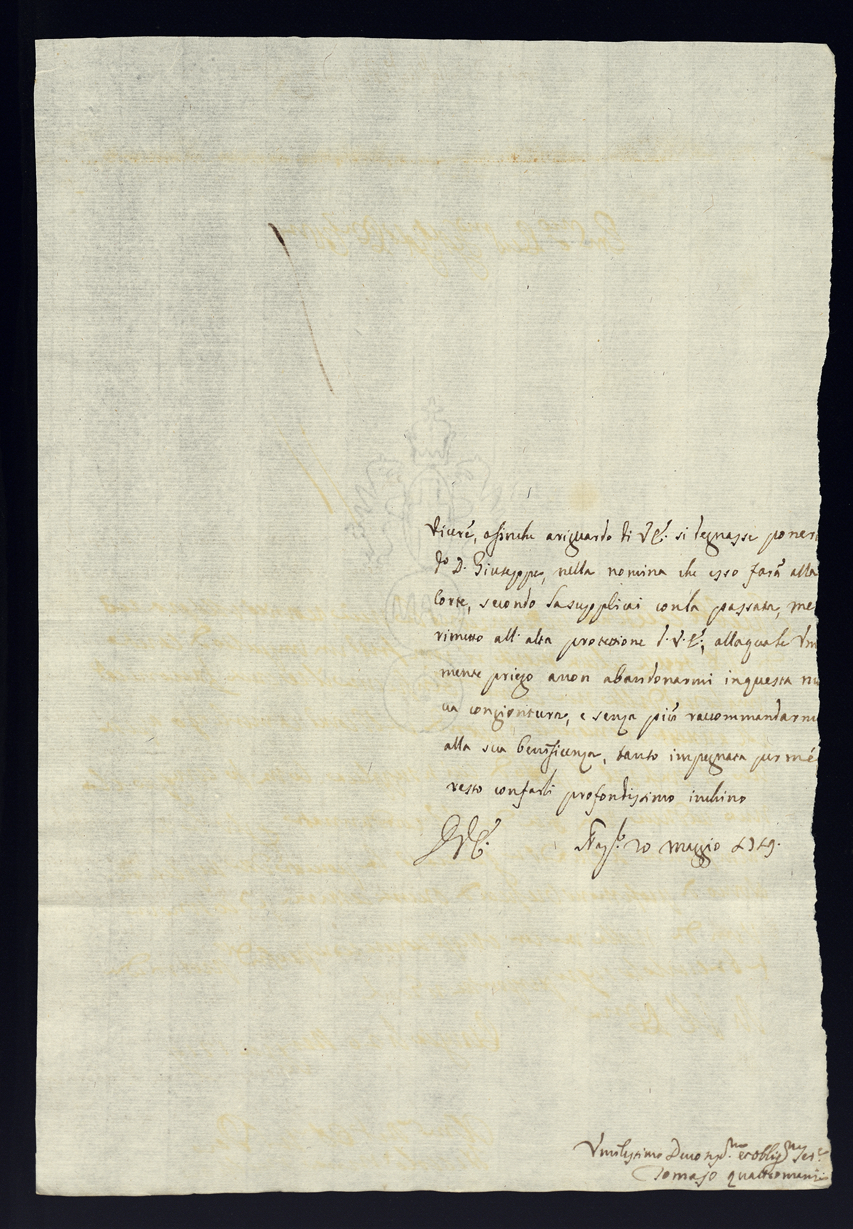 Vicerè, affinche ariguardo di V.E. si degnasse poner
do D. Giuseppe, nella nomina che esso farà alla
Corte, secondo la supplicai conla passata, me
rimetto all'alta protezzione d. V.E., allaquale Um
mente priego anon abbandonarmi inquesta nu
va congiontura, e senza più raccommandarmi
alla sua beneficenza, tanto impegnata per mé
resto confarli profondissimo inchino
D.V.E. Nap. 20 maggio
Umilissimo Devotis.mo et obblig.mo ser.
Tomaso quattromani